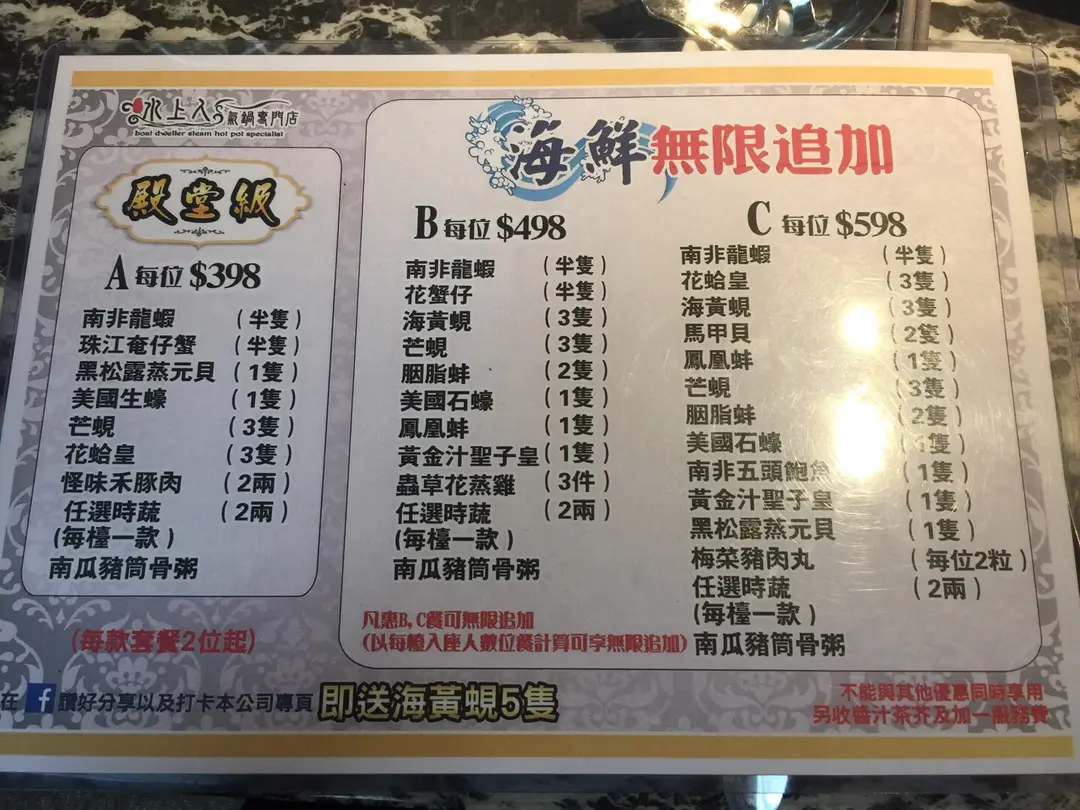 水上人 蒸氣鍋專門店
boat dweller steam hot pot specialist
殿堂級
A 每位 $398
南非龍蝦 (半隻)
珠江奄仔蟹 (半隻)
黑松露蒸元貝 (1隻)
美國生蠔 (1隻)
芒蜆 (3隻)
花蛤皇 (3隻)
怪味禾豚肉 (2兩)
任選時蔬 (2兩)
(每檯一款)
南瓜豬筒骨粥
(每款套餐2位起)
海鮮無限追加
B 每位 $498
南非龍蝦 (半隻)
花蟹仔 (半隻)
海黃蜆 (3隻)
芒蜆 (3隻)
胭脂蚌 (2隻)
美國石蠔 (1隻)
鳳凰蚌 (1隻)
黃金汁聖子皇 (1隻)
蟲草花蒸雞 (3件)
任選時蔬 (2兩)
(每檯一款)
南瓜豬筒骨粥
C 每位 $598
南非龍蝦 (半隻)
花蛤皇 (3隻)
海黃蜆 (3隻)
馬甲貝 (2隻)
鳳凰蚌 (1隻)
芒蜆 (3隻)
胭脂蚌 (2隻)
美國石蠔 (1隻)
南非五頭鮑魚 (1隻)
黃金汁聖子皇 (1隻)
黑松露蒸元貝 (1隻)
梅菜豬肉丸 (每位2粒)
任選時蔬 (2兩)
(每檯一款)
南瓜豬筒骨粥
凡惠B,C餐可無限追加
(以每檯入座人數位餐計算可享無限追加)
在 f 讚好分享以及打卡本公司專頁 即送海黃蜆5隻
不能與其他優惠同時享用
另收醬汁茶芥及加一服務費